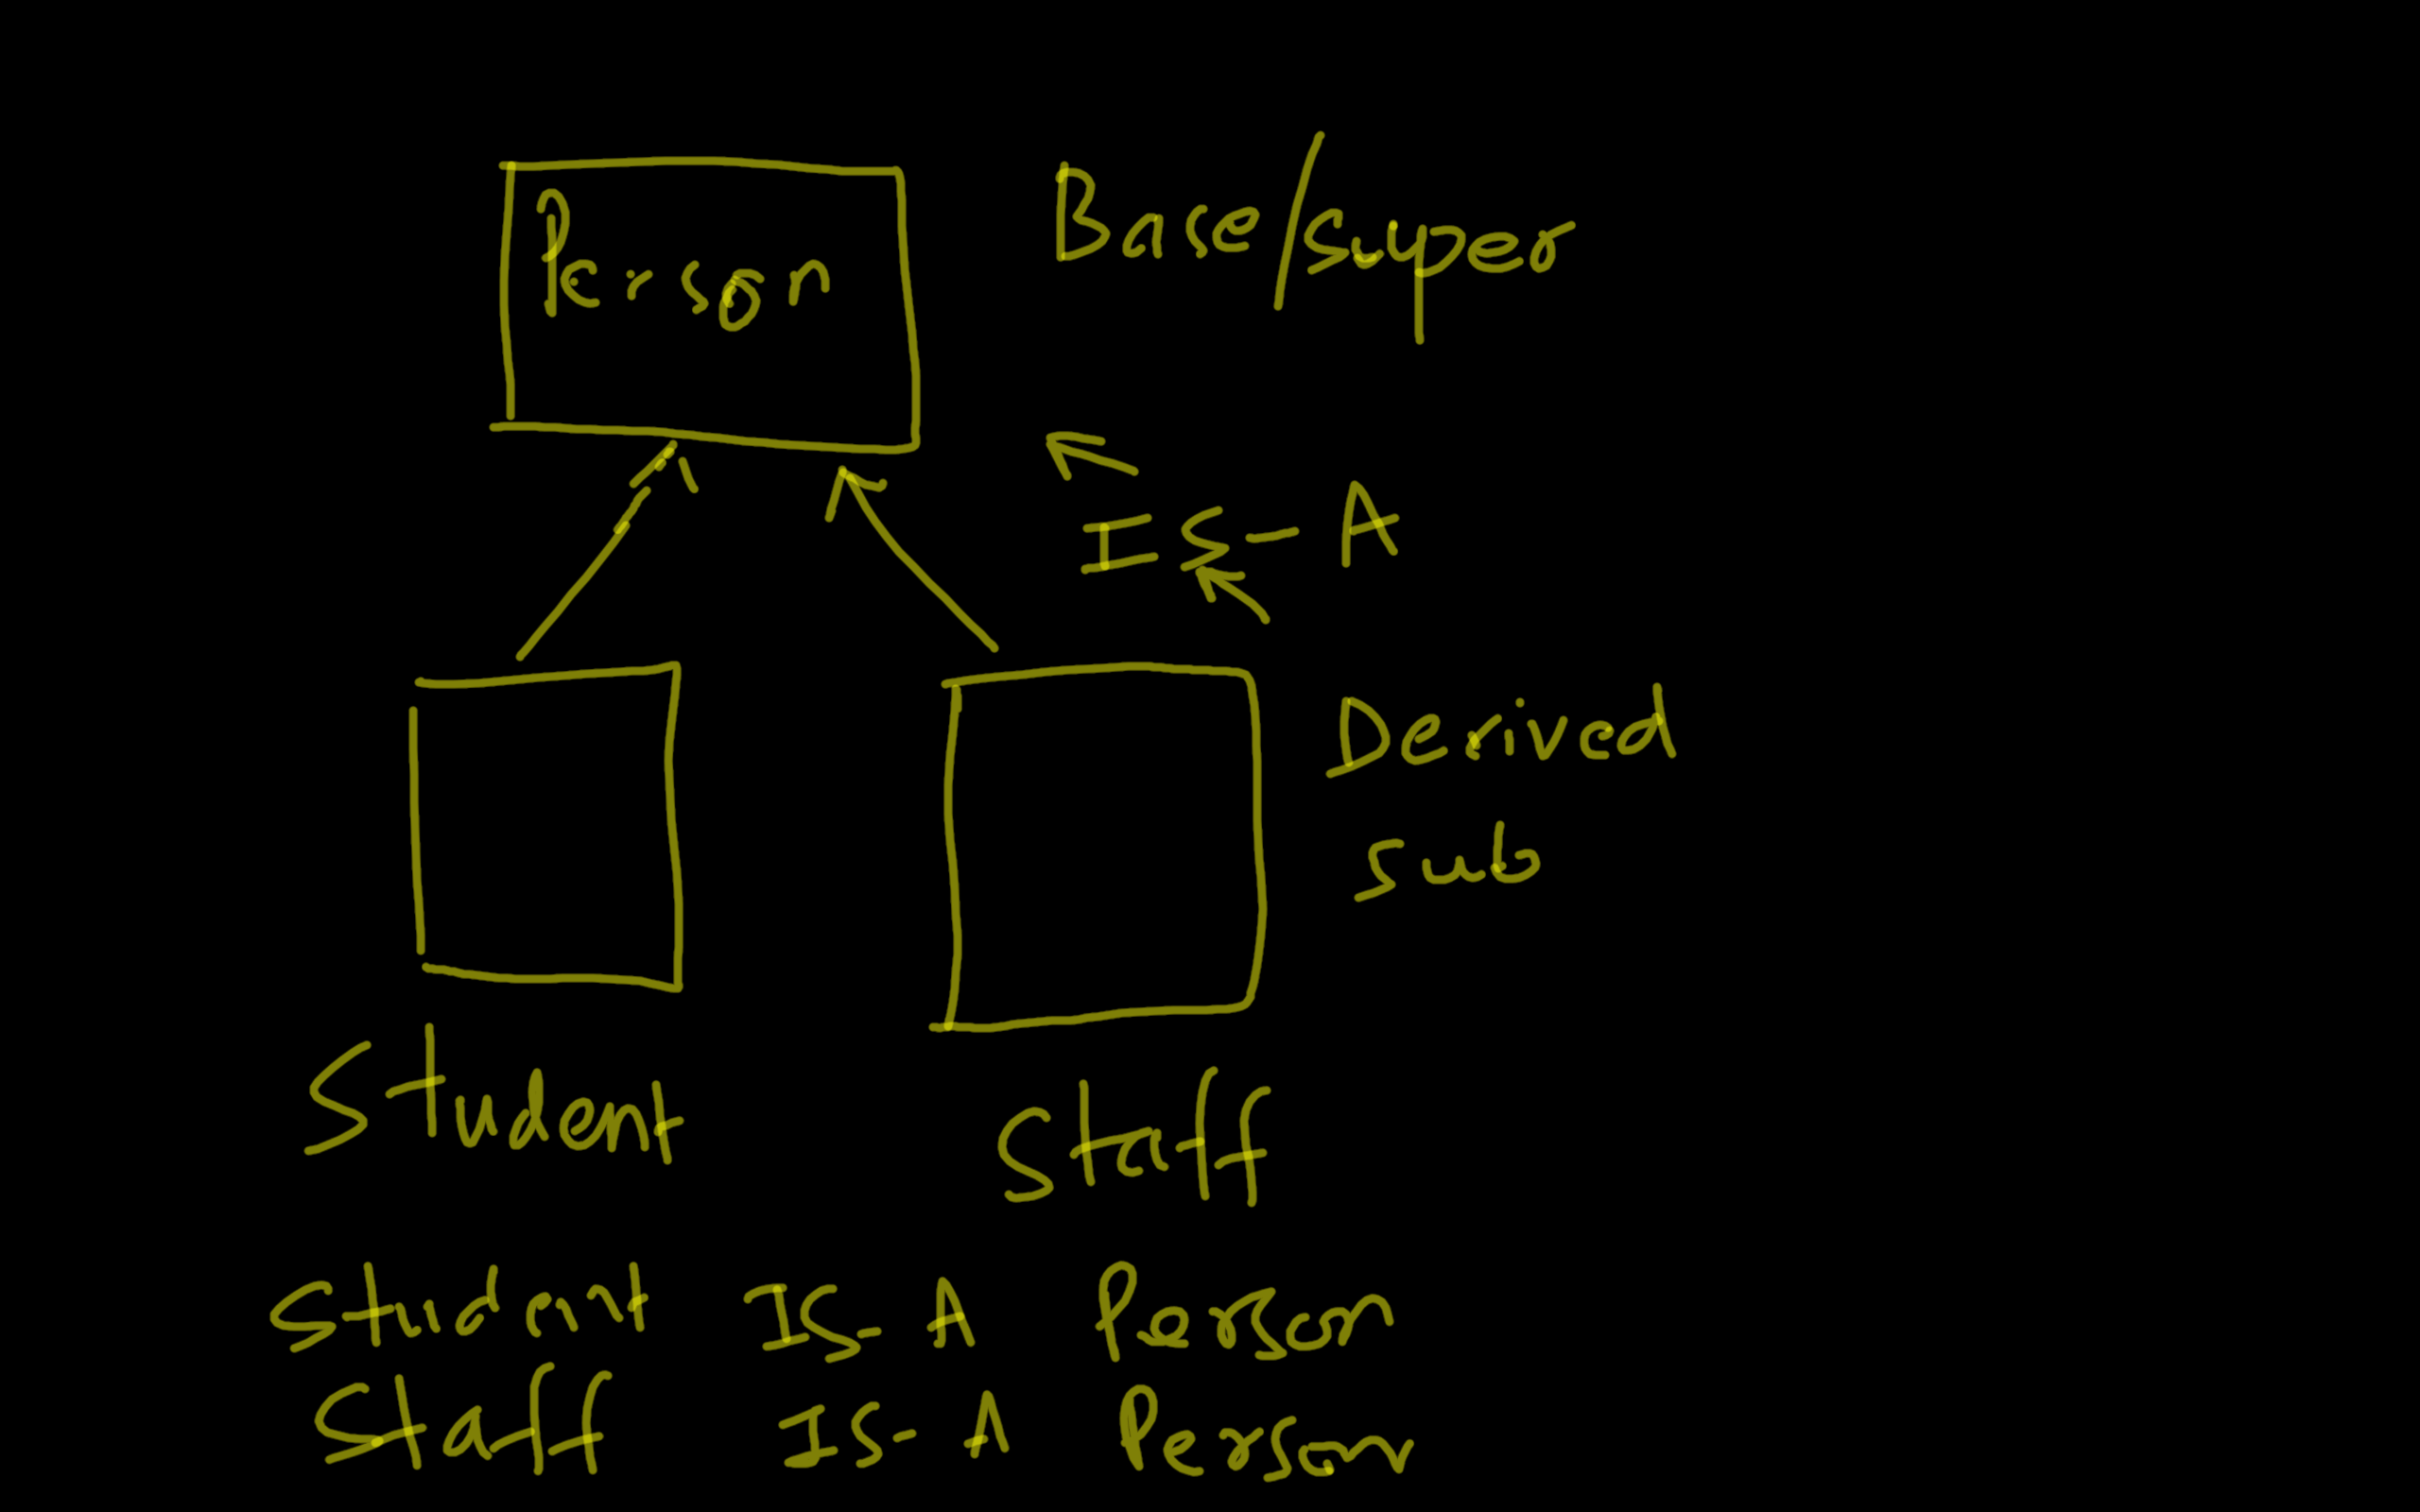 Person
Base/super
IS-A
Derived
sub
Student
Staff
Student IS-A Person
Staff IS-A Person